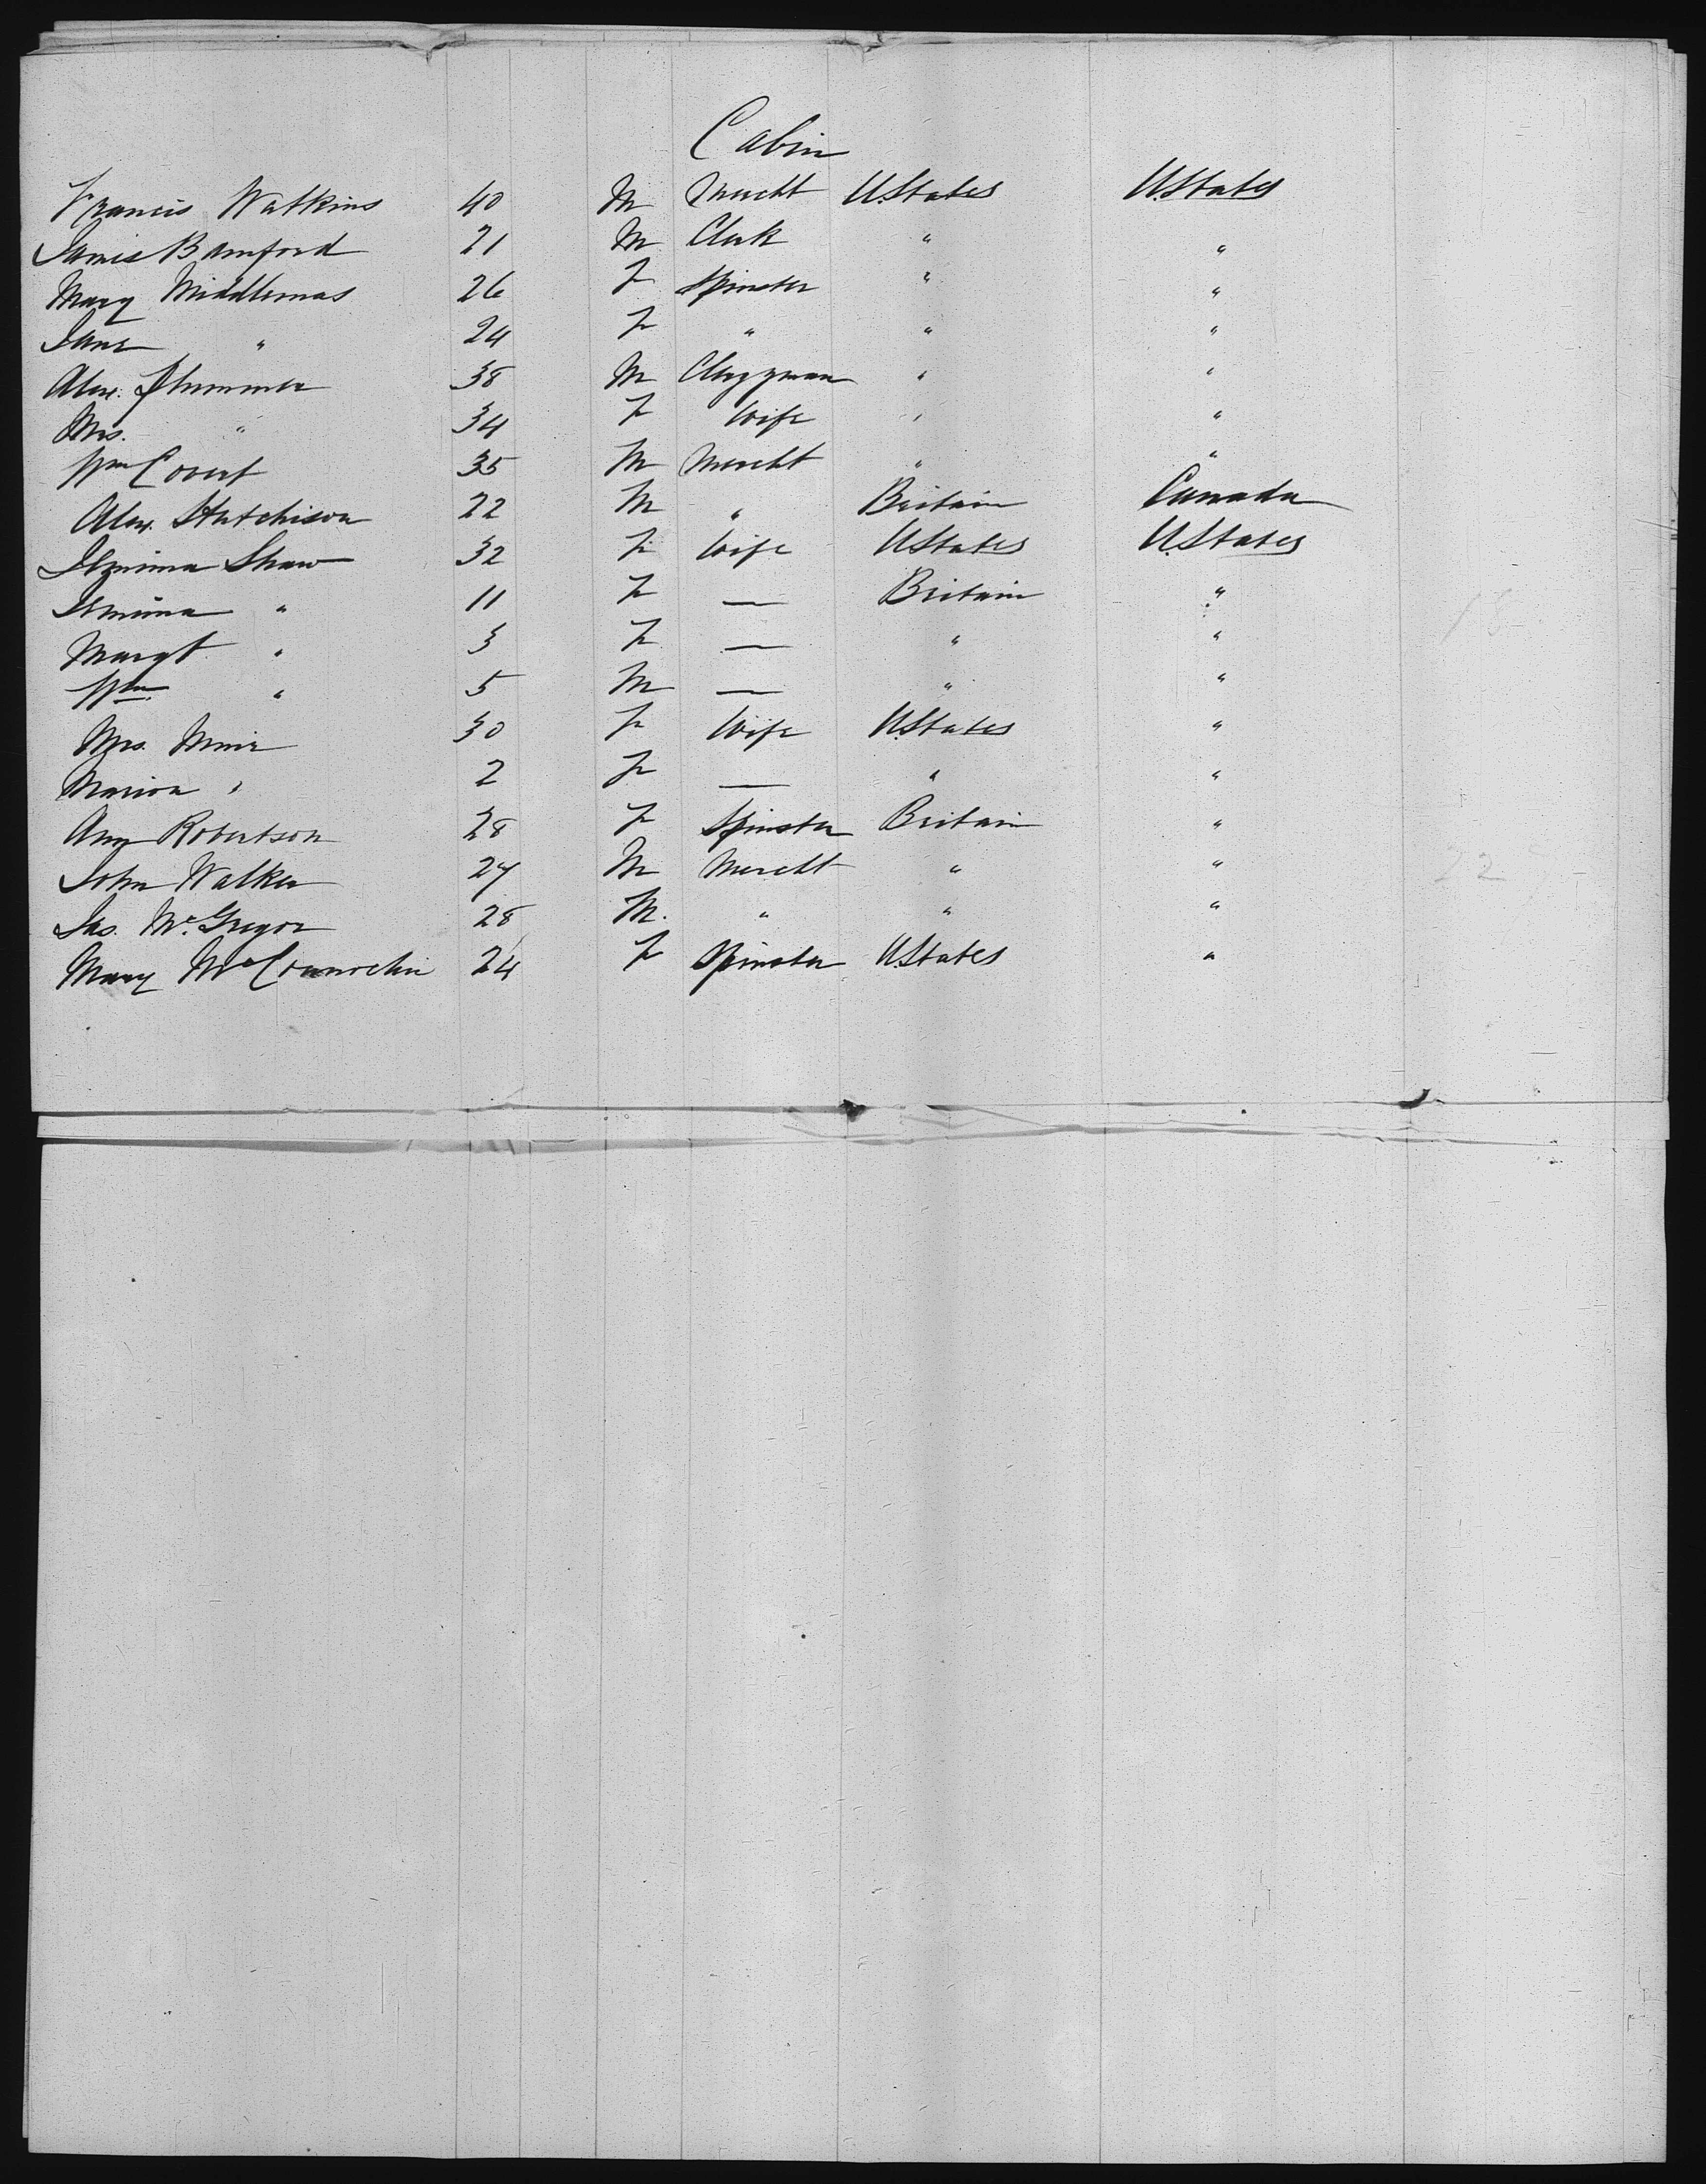 Cabin
Francis Watkins 40 M Mercht U.States U.States
James Bamford 21 M Clerk " "
Mary Middlemas 26 F Spinster " "
Jane " 24 F " " "
Alex. Plummer 38 M Clergyman " "
Mrs. " 34 F Wife " "
Wm Covert 35 M Mercht " "
Alex. Hutchison 22 M " Britain Canada
Jemima Shaw 32 F Wife U.States U.States
Jemima " 11 F — Britain "
Margt " 3 F — " "
Wm. " 5 M — " "
Mrs. Muir 30 F Wife U.States "
Marion " 2 F — " "
Ann Robertson 28 F Spinster Britain "
John Walker 27 M Mercht " "
Jas. McGregor 28 M. " " "
Mary McConnochie 24 F Spinster U.States "